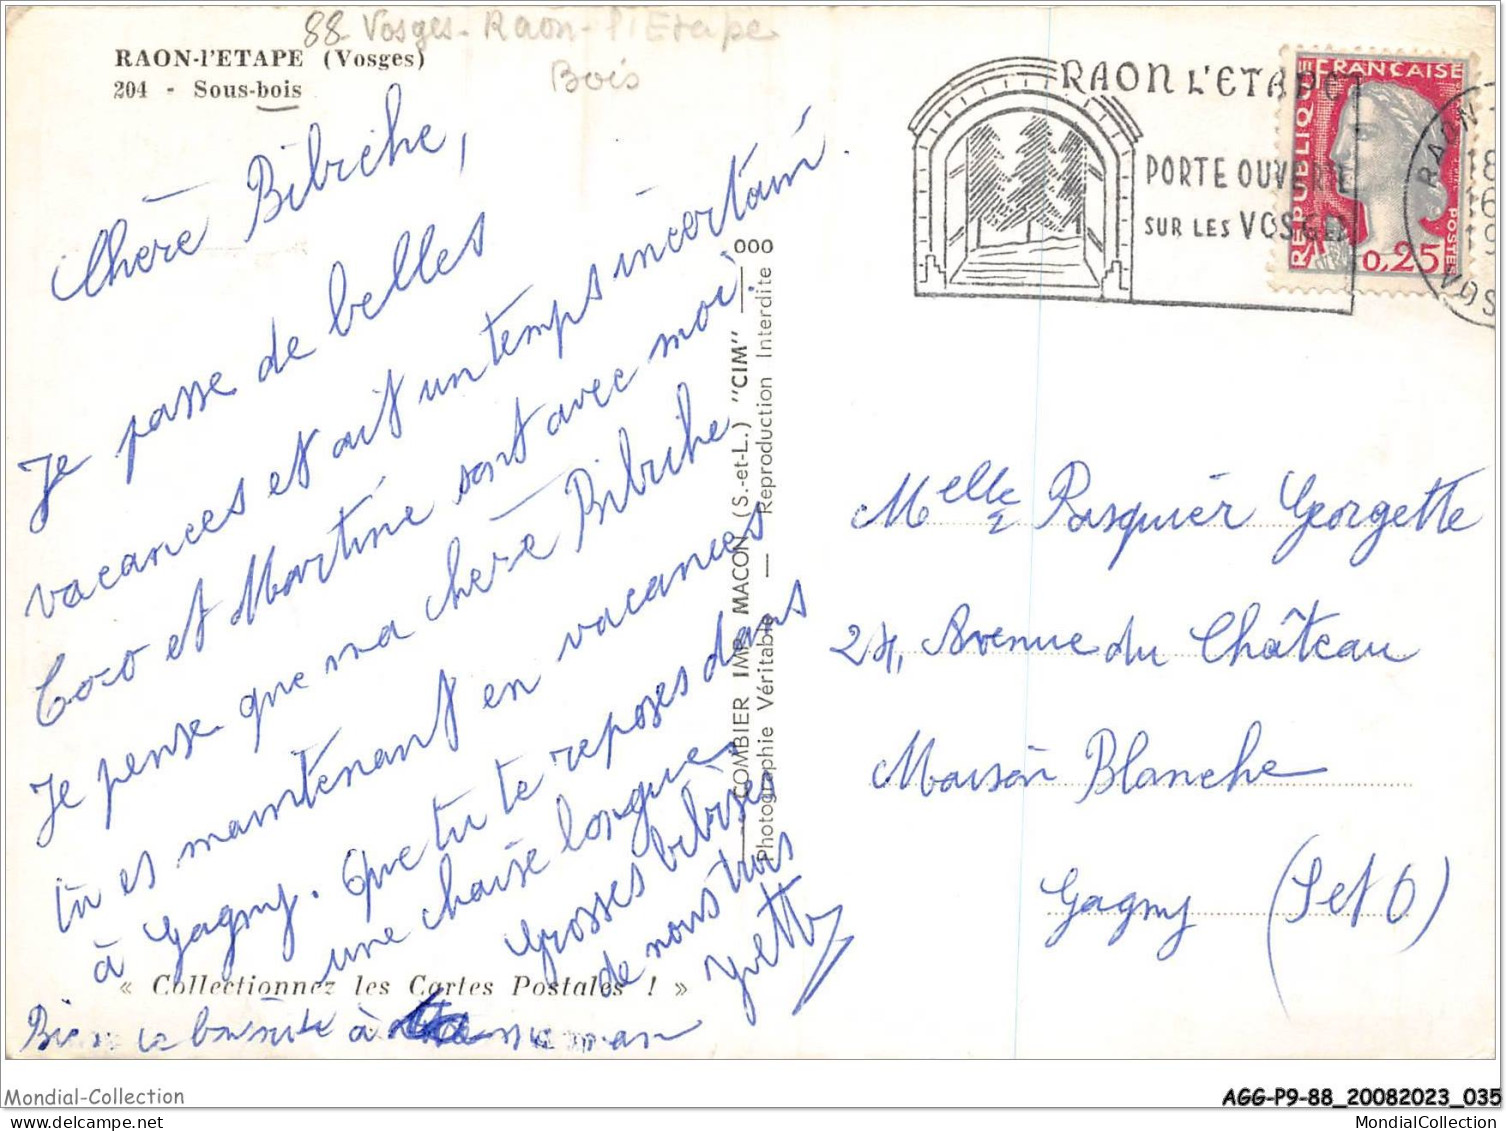 88 Vosges - Raon-l'Etape
Bois
RAON-l'ETAPE (Vosges)
204 - Sous-bois
Chère Bibiche,
Je passe de belles
vacances et ait un temps incertain.
Coco et Martine sont avec moi.
Je pense que ma chère Bibiche
tu es maintenant en vacances
à Gagny. Que tu te reposes dans
une chaise longue
Grosses bibises
de nous trois
Yvette
« Collectionnez les Cartes Postales ! »
à
maman
COMBIER IMP. MACON (S.-et-L.) "CIM"
Photographie Véritable — Reproduction Interdite
RAON L'ETAPE
PORTE OUVERTE
SUR LES VOSGES
REPUBLIQUE FRANÇAISE
POSTES
0,25
RAON
18
16
19
VOS
Melle Pasquier Georgette
24, Avenue du Château
Maison Blanche
Gagny (S et O)
Mondial-Collection
AGG-P9-88_20082023_035
MondialCollection.com